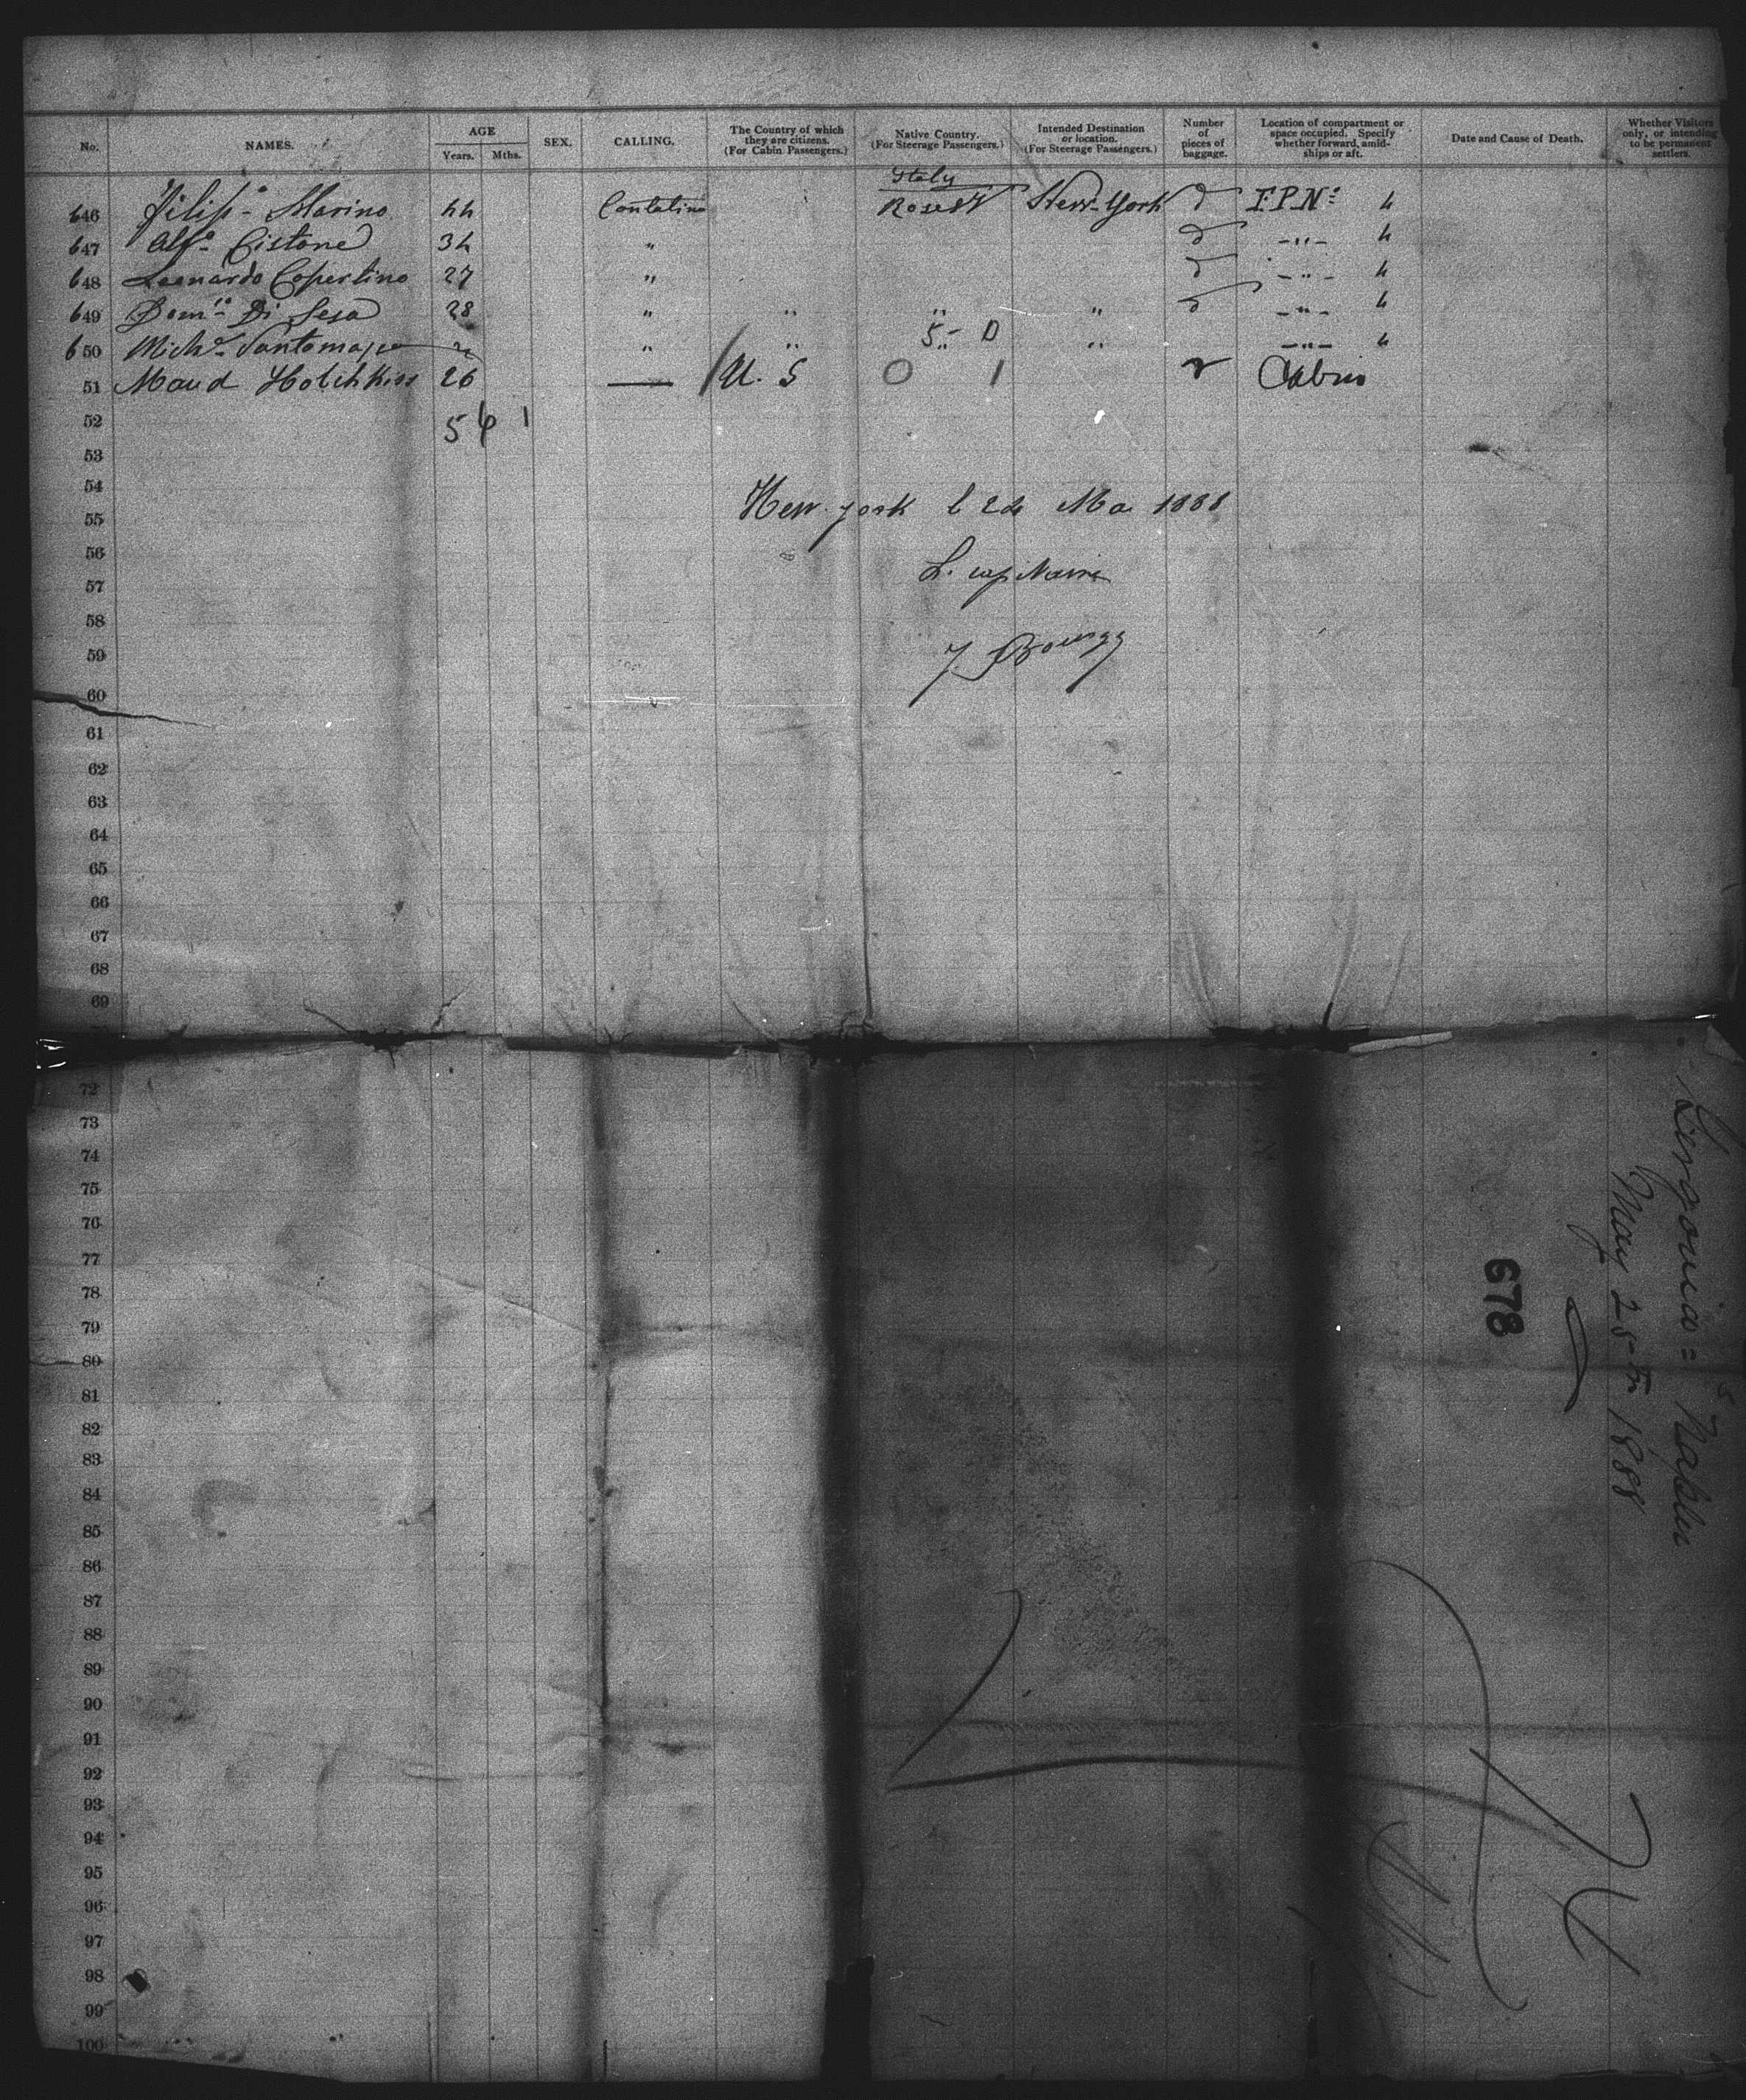 No. NAMES. AGE Years. Mths. SEX. CALLING. The Country of which they are citizens. (For Cabin Passengers.) Native Country. (For Steerage Passengers.) Intended Destination or location. (For Steerage Passengers.) Number of pieces of baggage. Location of compartment or space occupied. Specify whether forward, amid-ships or aft. Date and Cause of Death. Whether Visitors only, or intending to be permanent settlers.
Italy
646 Filipo Marino 44 New-York F.P.No 4
647 Alfo Cistone 34 " -"- 4
648 Leonardo Copertino 27 " -"- 4
649 Domco Di Sesa 28 " " " " -"- 4
5- 0
650 Miche " " " " -"- 4
51 Maud Hotchkiss 26 — U. S 0 1 2 Cabin
52
5 6 1
53
54
New-york l 24 Mai 1888
55
56
57
L. capitaine
58
59
60
61
62
63
64
65
66
67
68
69
72
73
74
75
76
77
78
79
80
81
82
83
84
85
86
87
88
89
90
91
92
93
94
95
96
97
98
99
100
Naples
May 25th 1888
678